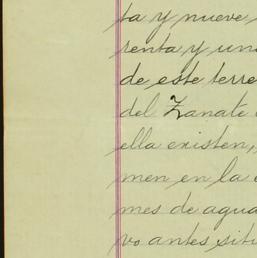 ta y nueve
renta y un
de este terre
del Zanate
ella existen,
men en la
mes de agua
vo antes situ